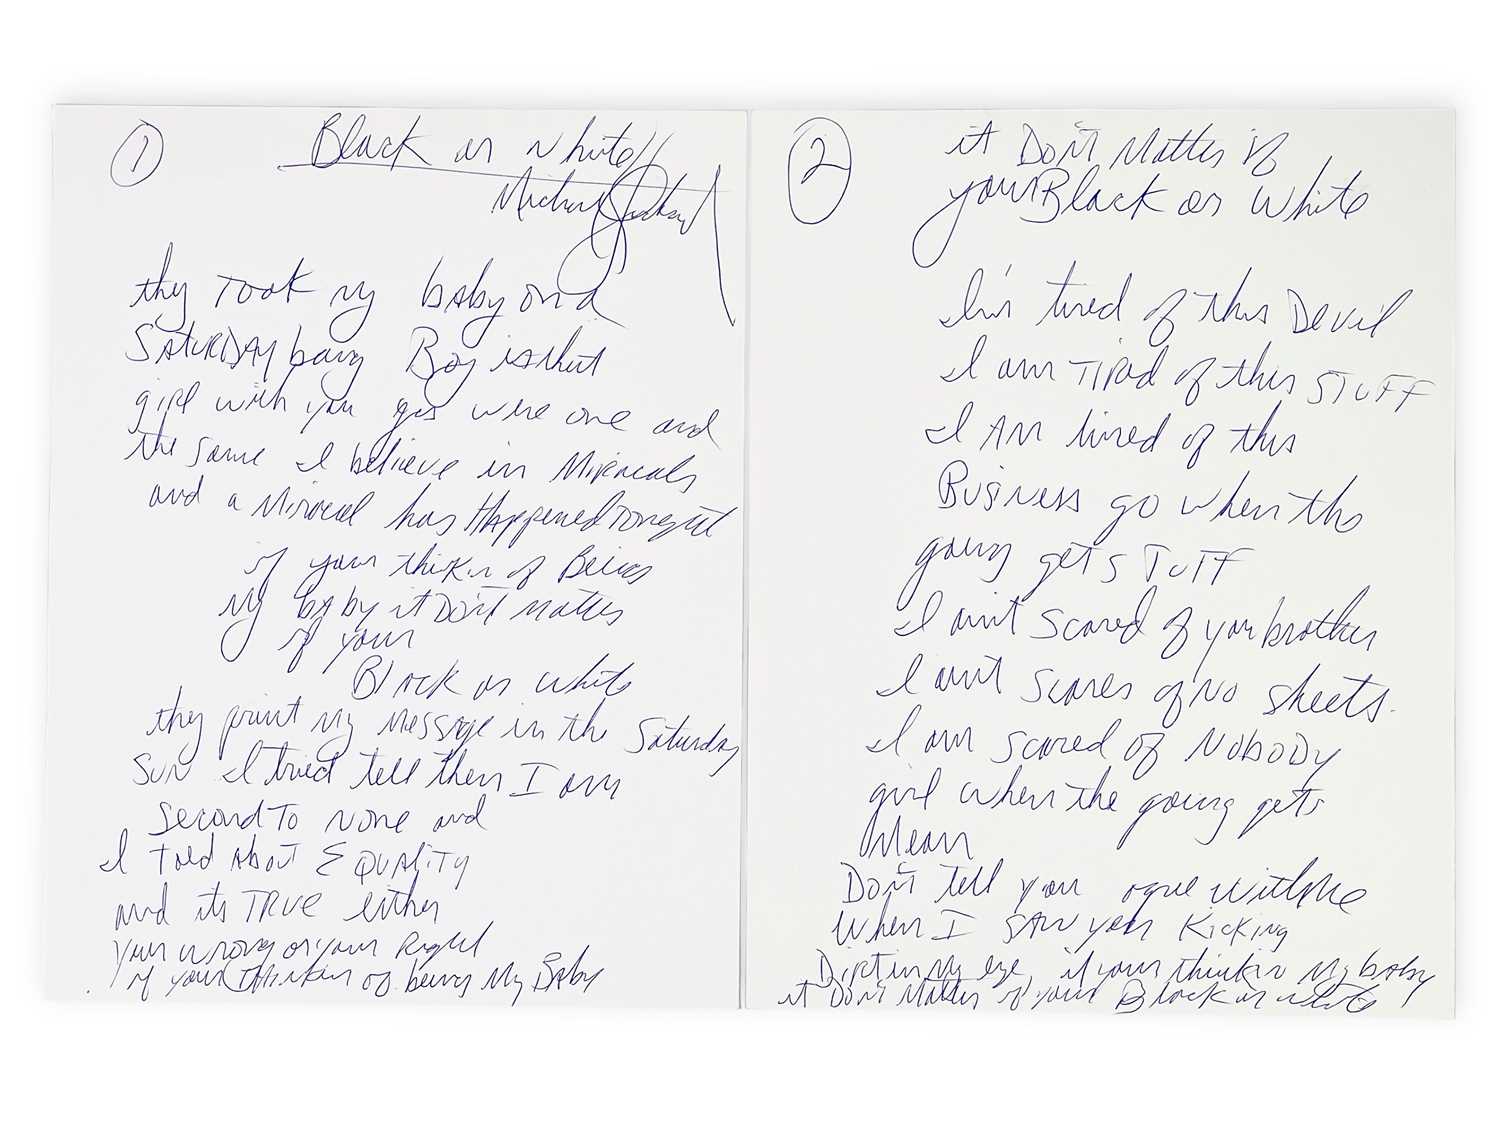 1
Black or White
Michael Jackson
they Took my baby on a
SATURDAY bang Boy is that
girl with you yes were one and
the same I believe in Miracals
and a Miracal has Happened Tonight
if your thinkin of Being
My baby it Don't matter
if your
Black or white
they print my message in the Saturday
SUN I tried tell them I am
Second To None and
I Told About EQUALITY
and its TRUE either
your wrong or your Right
if your THinkin of being My BAby
2
it Don't Matter if
your Black or White
I'm tired of this DEvil
I am TIRed of this STUFF
I AM tired of this
BUSiNess go when the
going gets TUFF
I aint scared of your brother
I aint scares of No sheets.
I am scared of NOBODY
girl when the going gets
Mean
Don't tell you agree with Me
When I SAW you Kicking
Dirt in My eye, if your thinkin My baby
it Don't Matter if your Black or white